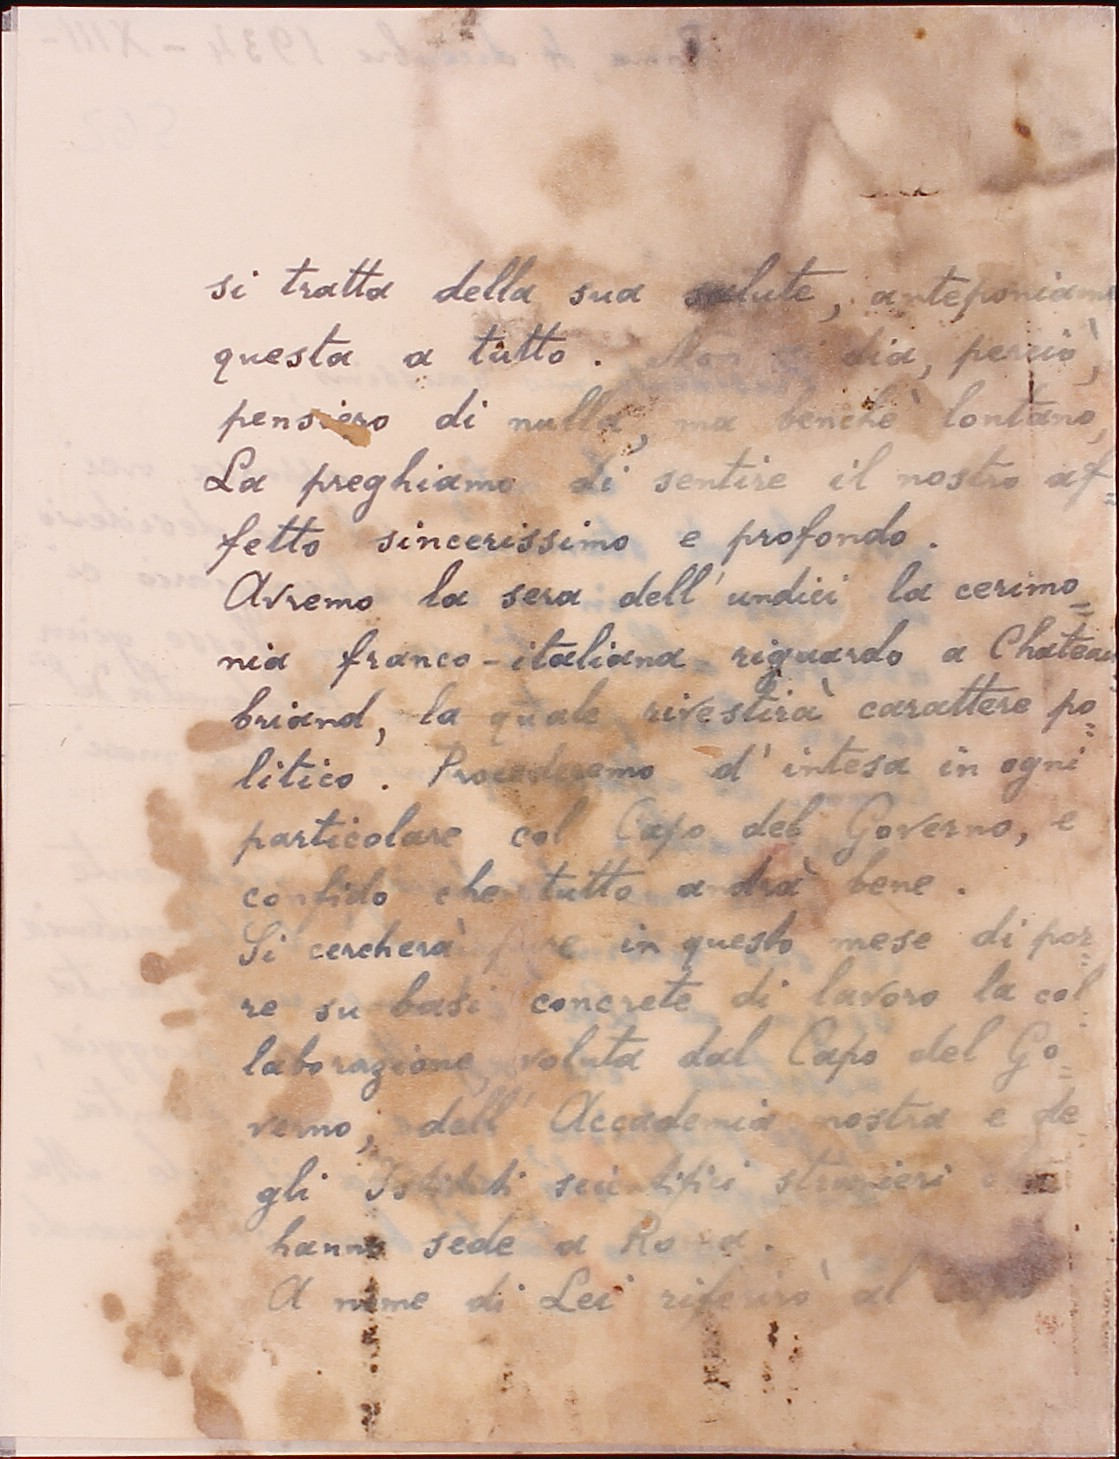 si tratta della sua salute, anteponiamo
questa a tutto. Non si dia, perciò,
pensiero di nulla, ma benchè lontano,
La preghiamo di sentire il nostro af=
fetto sincerissimo e profondo.
Avremo la sera dell'undici la cerimo=
nia franco-italiana riguardo a Chateau
briand, la quale rivestirà carattere po=
litico. Procederemo d'intesa in ogni
particolare col Capo del Governo, e
confido che tutto andrà bene.
Si cercherà pure in questo mese di por=
re su basi concrete di lavoro la col=
laborazione, voluta dal Capo del Go=
verno, dell'Accademia nostra e de
gli Istituti scientifici stranieri
hanno sede a Roma.
A nome di Lei riferirò al